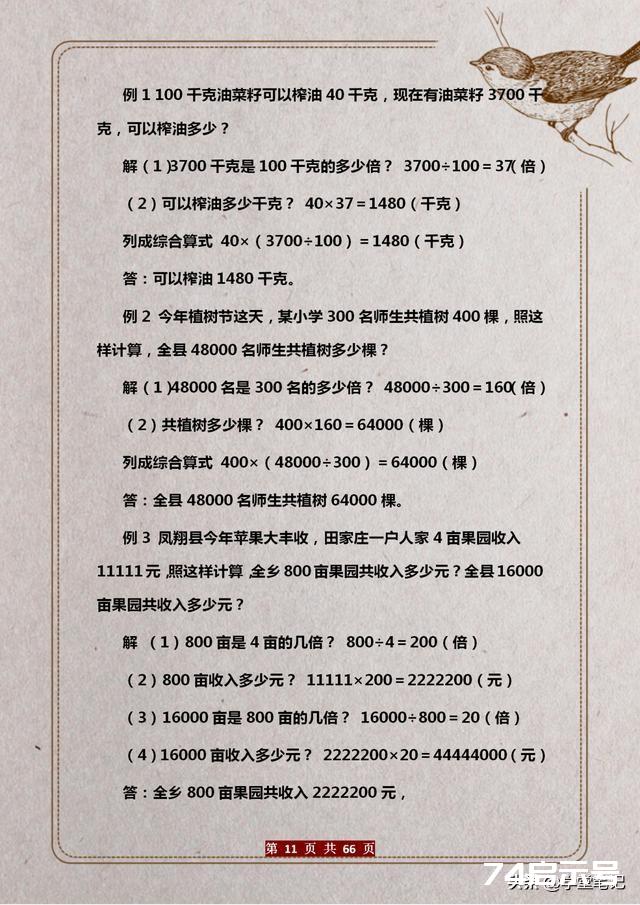 例1 100千克油菜籽可以榨油40千克，现在有油菜籽3700千
克，可以榨油多少？
解（1）3700千克是100千克的多少倍？ 3700÷100＝37（倍）
（2）可以榨油多少千克？ 40×37＝1480（千克）
列成综合算式 40×（3700÷100）＝1480（千克）
答：可以榨油1480千克。
例2 今年植树节这天，某小学300名师生共植树400棵，照这
样计算，全县48000名师生共植树多少棵？
解（1）48000名是300名的多少倍？ 48000÷300＝160（倍）
（2）共植树多少棵？ 400×160＝64000（棵）
列成综合算式 400×（48000÷300）＝64000（棵）
答：全县48000名师生共植树64000棵。
例3 凤翔县今年苹果大丰收，田家庄一户人家4亩果园收入
11111元，照这样计算，全乡800亩果园共收入多少元？全县16000
亩果园共收入多少元？
解 （1）800亩是4亩的几倍？ 800÷4＝200（倍）
（2）800亩收入多少元？ 11111×200＝2222200（元）
（3）16000亩是800亩的几倍？ 16000÷800＝20（倍）
（4）16000亩收入多少元？ 2222200×20＝44444000（元）
答：全乡800亩果园共收入2222200元，
第 11 页 共 66 页
74启示号